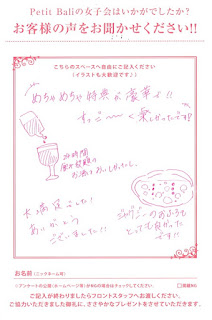 Petit Baliの女子会はいかがでしたか?
お客様の声をお聞かせください!!
こちらのスペースへ自由にご記入ください
(イラストも大歓迎です♪)
めちゃめちゃ特典が豪華で!!
すっご〜く楽しかったです!
24時間
飲み放題の
お酒もおいしかった。
大満足でした!
ありがとう
ございました!!
ジャグジーのおふろも
とっても良かった
です!!
お名前(ニックネーム可)
ご記入が終わりましたらフロントスタッフへお渡しください。
ご協力いただきました御礼に、ささやかなプレゼントをさせていただきます。